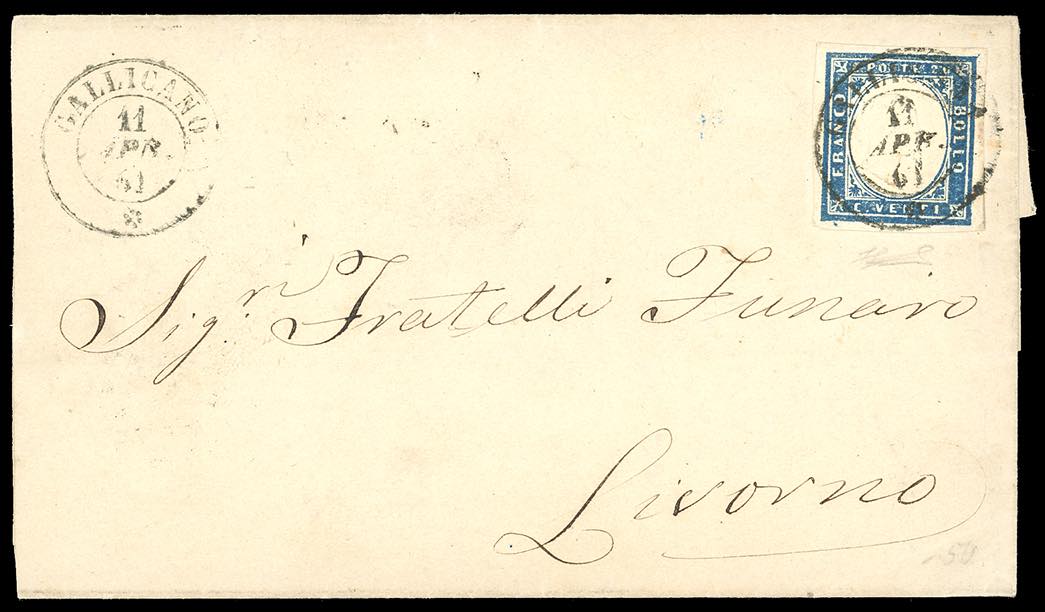 GALLICANO
11
APR.
61
FRANCO
POSTE 20
BOLLO
C. VENTI
GALLICANO
11
APR.
61
Sig.ri Fratelli Funaro
Livorno
50